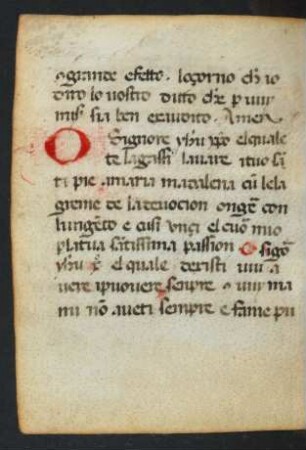 a grande efetto. logorno ch io
ditto lo vostro ditto che p vui
mis sia ben exaudito. Amen
O Signore yhu xpo el quale
te lagassi lavare i tuo sã
ti pie a maria madalena cũ le la
greme de la devocion ongẽ con
lungẽto e cusi vnçi el cuo mio
p la tua sãtissima passion O sigõ
yhu xp̃ el quale deristi
vere i povere senpre a vui ma
mi nõ aveti senpre e fame pu